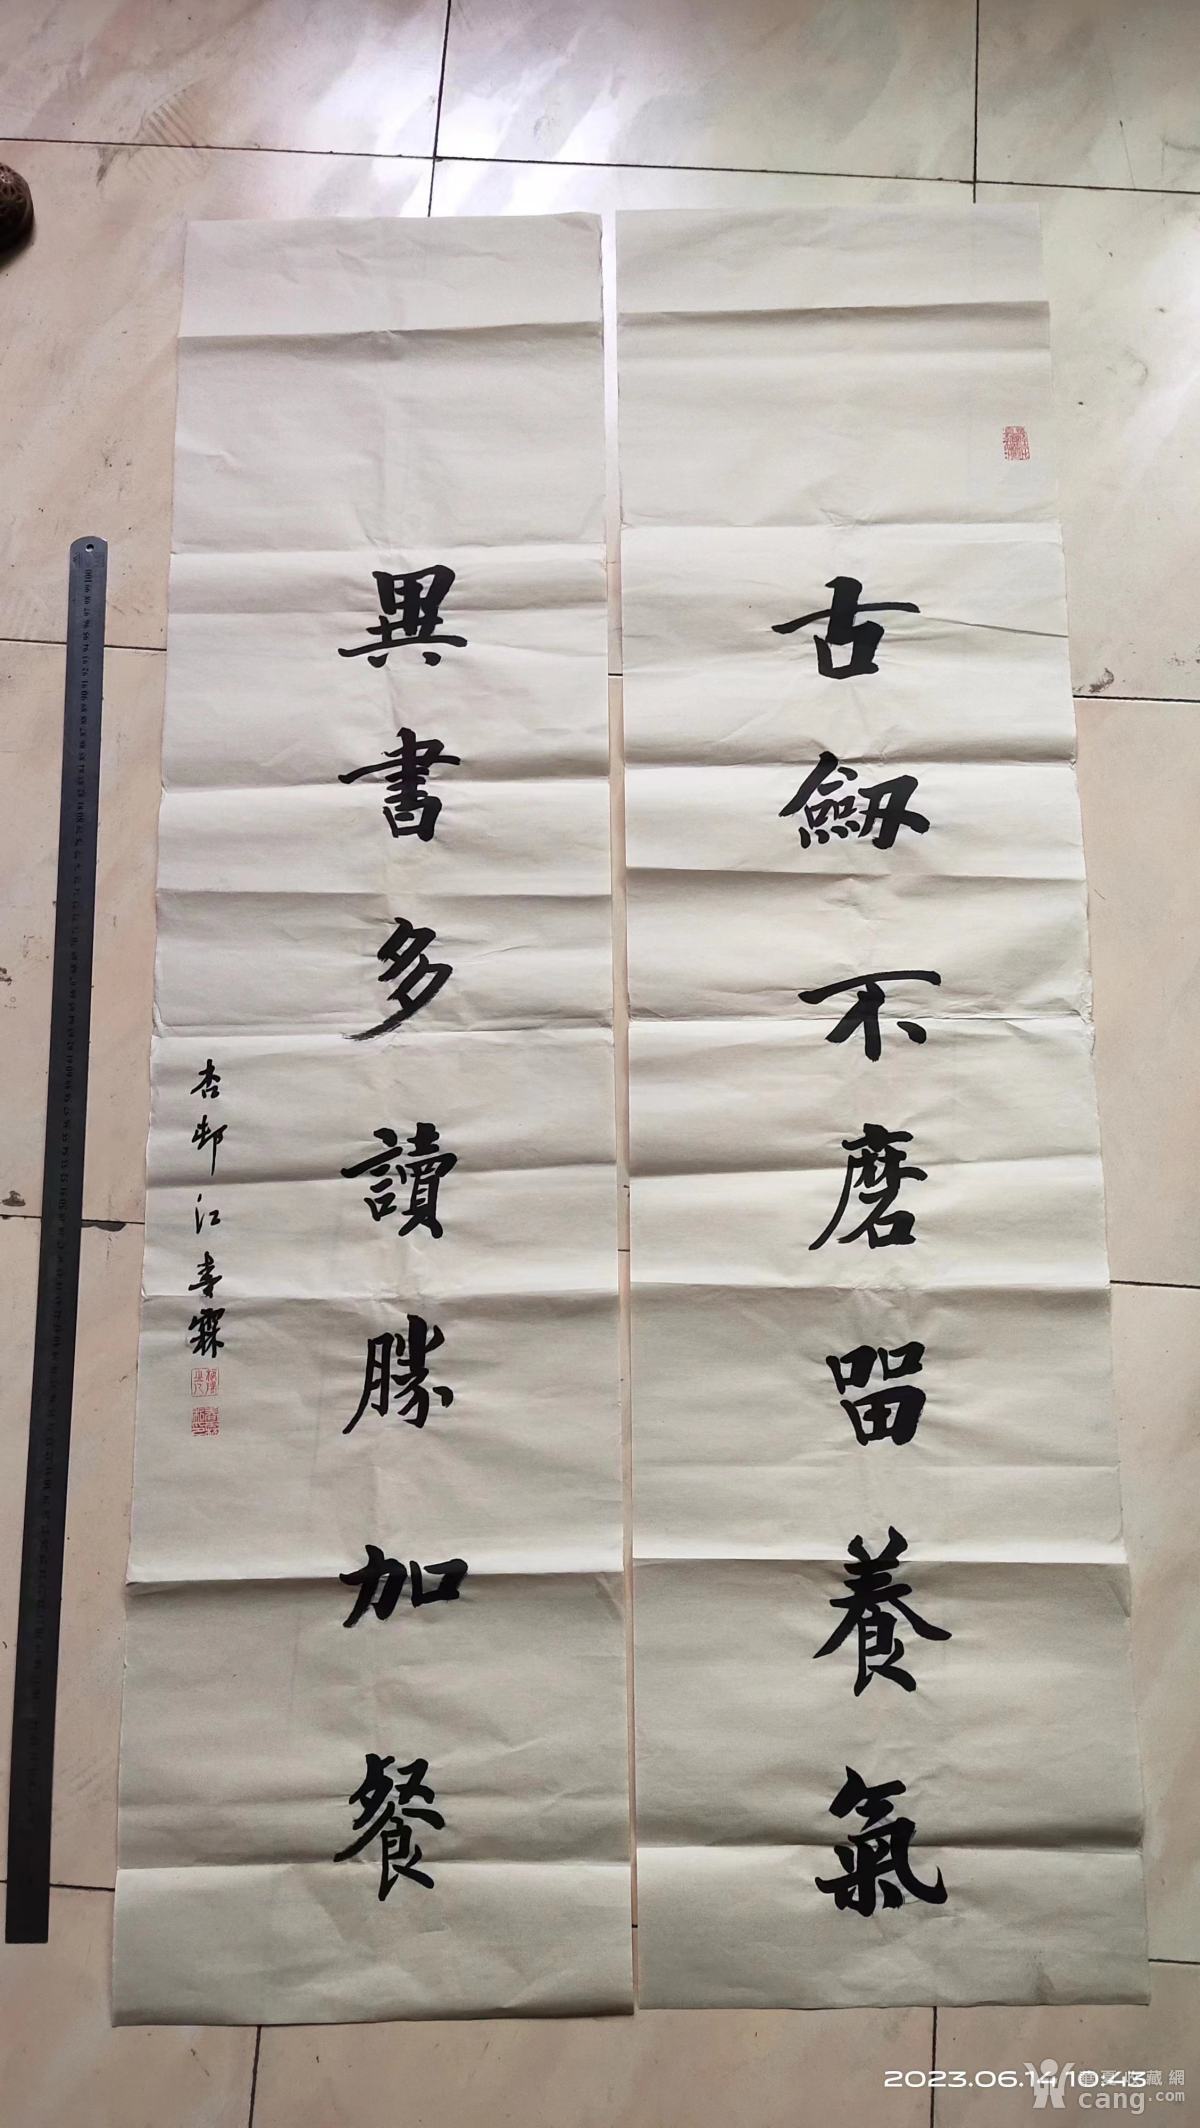 古劒不磨畱養氣
異書多讀勝加餐
杏邨江春霖
2023.06.14 10:43
華夏收藏網
cang.com